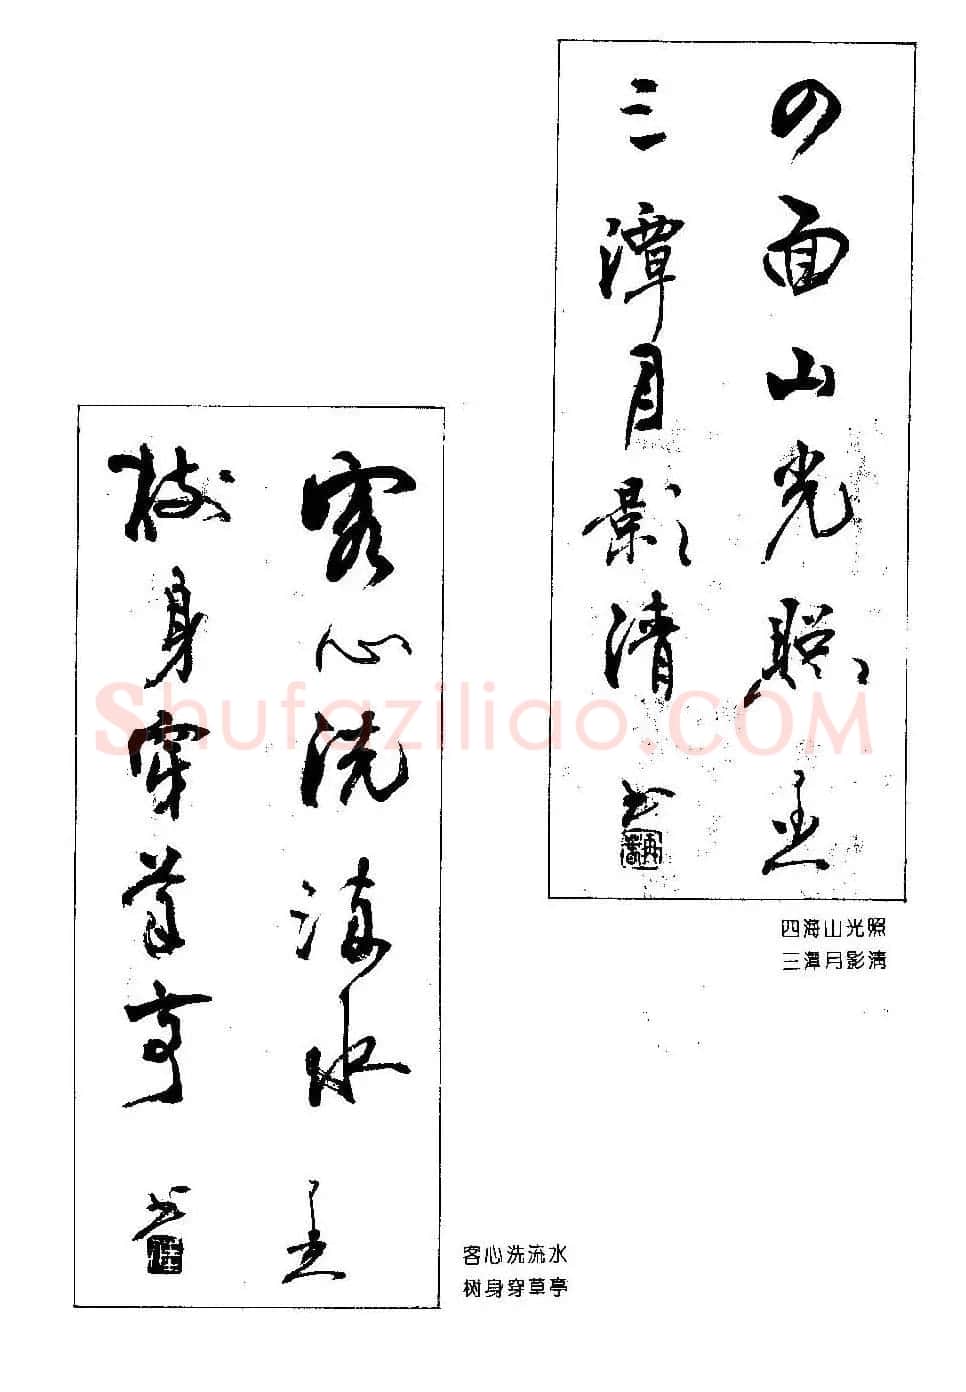 四面山光照
三潭月影清
书
四海山光照
三潭月影清
客心洗流水
树身穿草亭
书
客心洗流水
树身穿草亭
Shufaziliao.COM